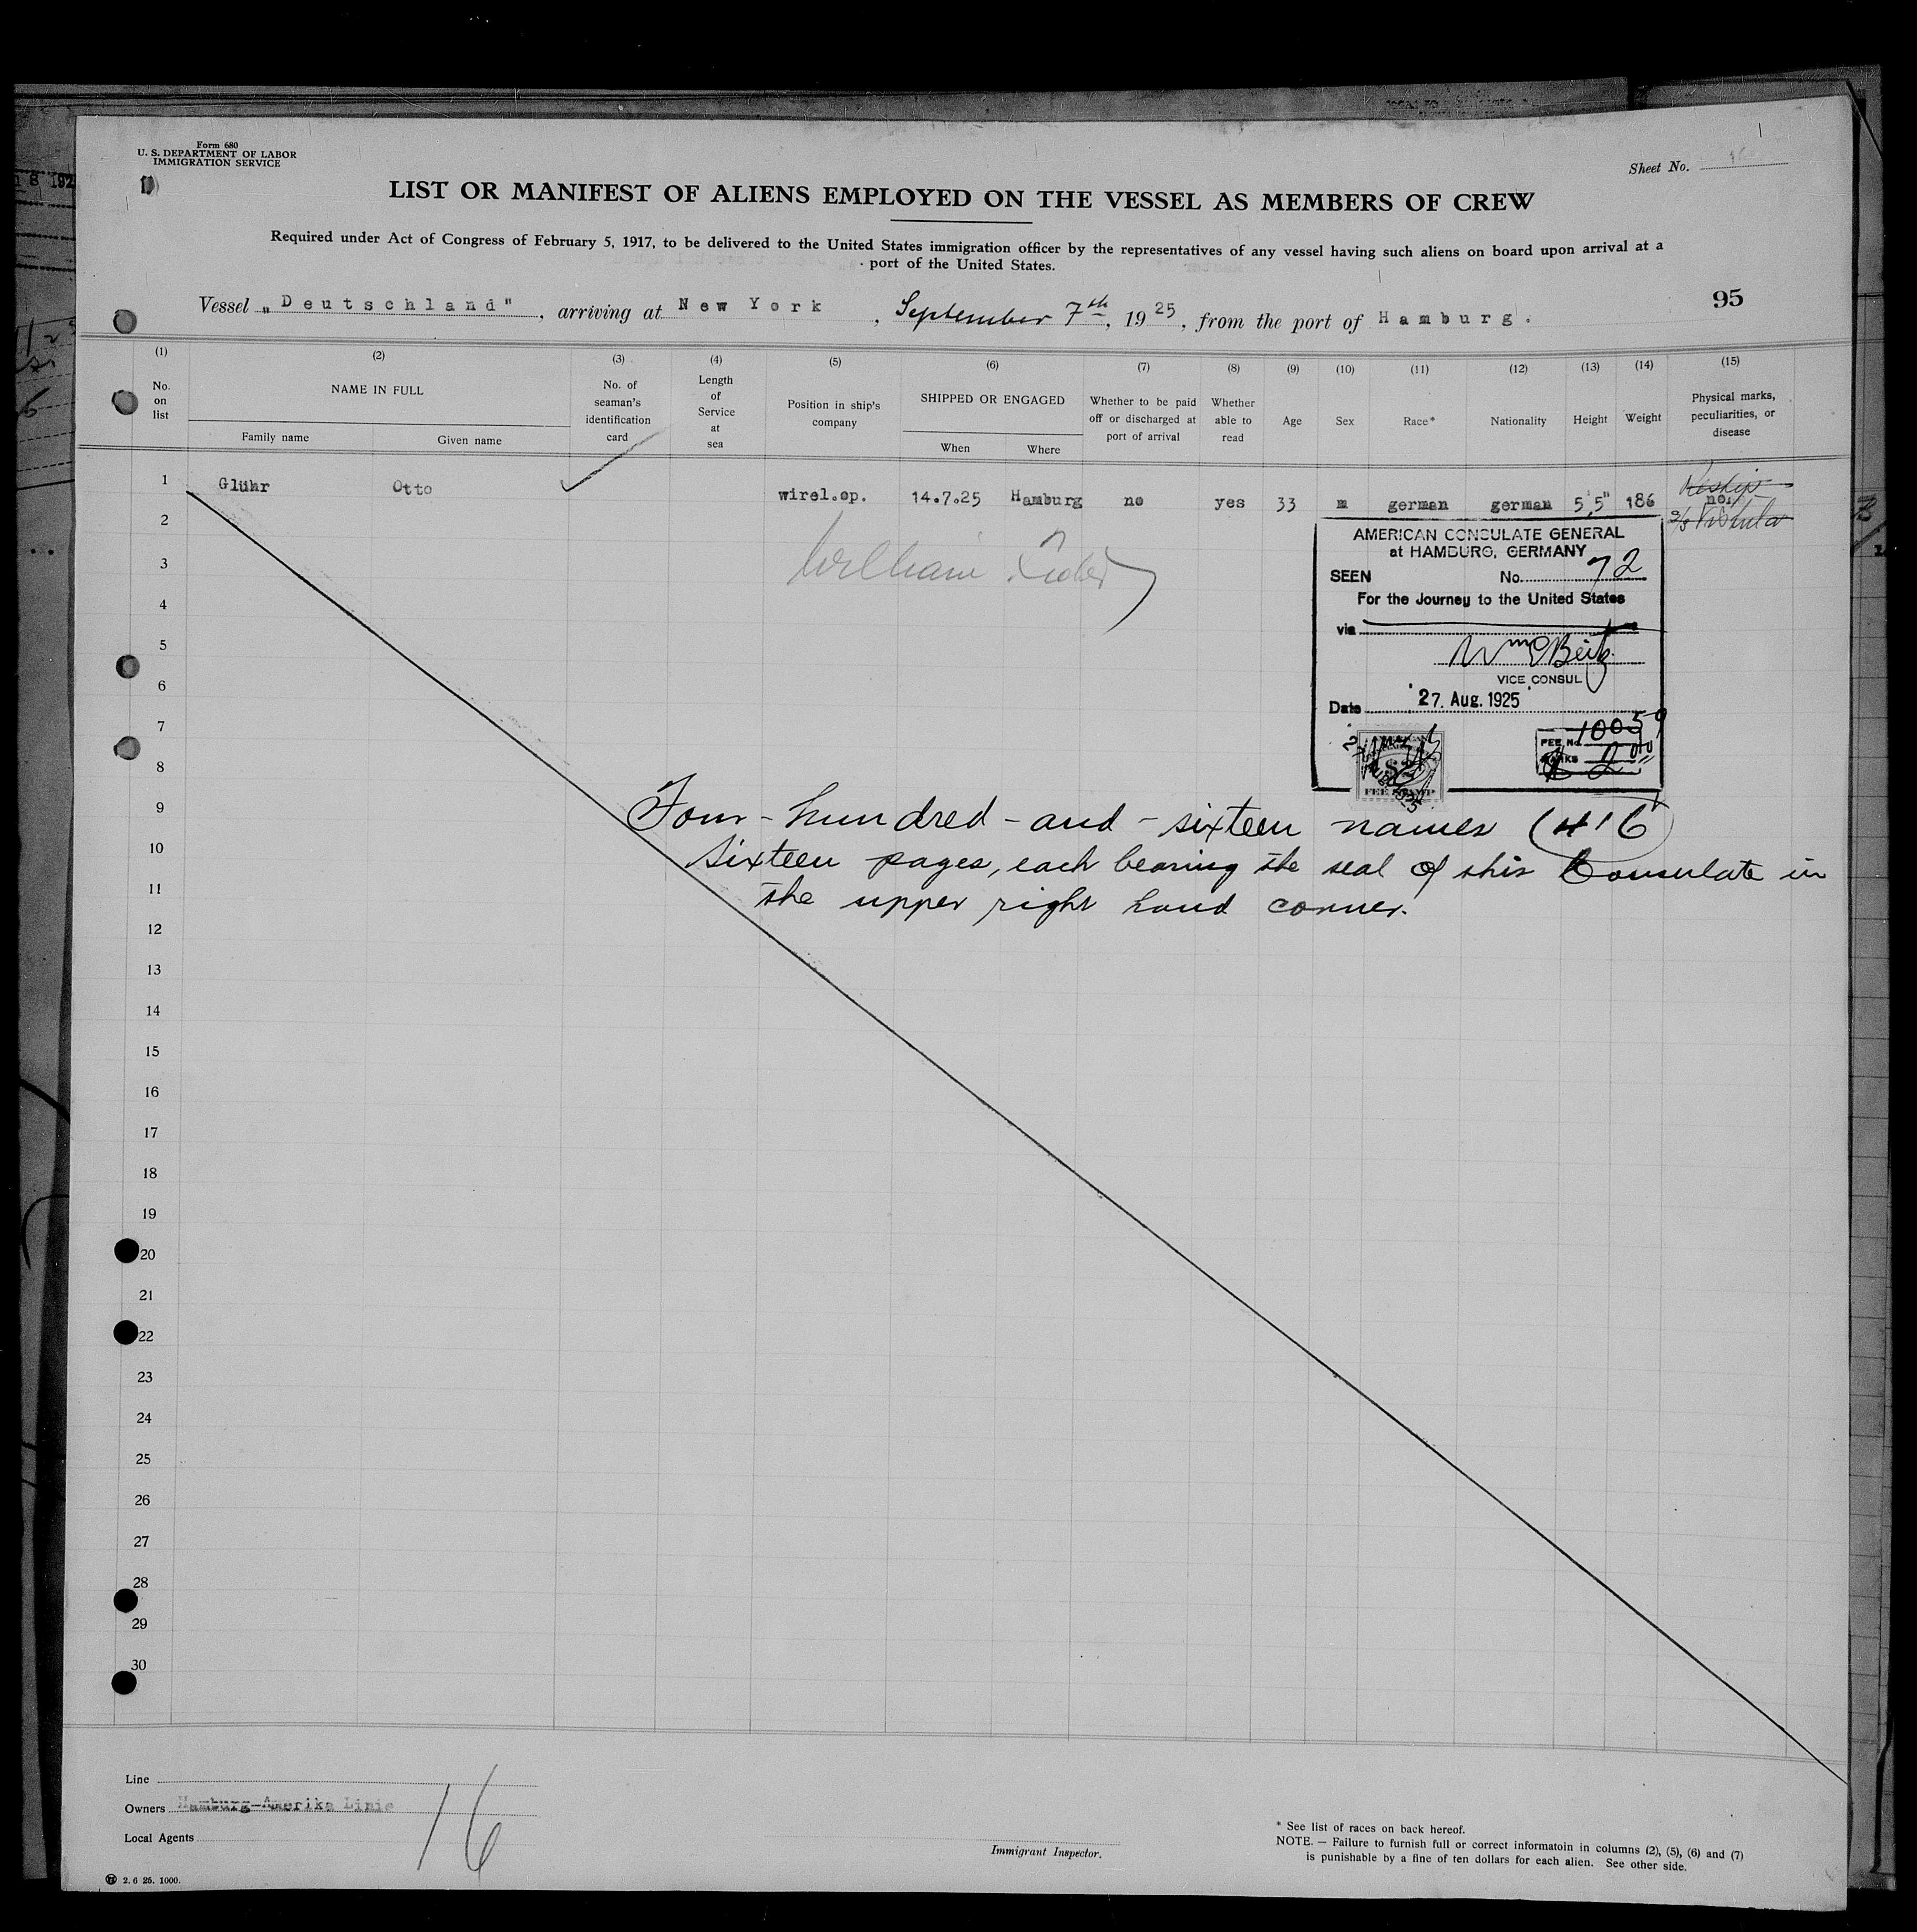 Form 680
U. S. DEPARTMENT OF LABOR
IMMIGRATION SERVICE
Sheet No.
LIST OR MANIFEST OF ALIENS EMPLOYED ON THE VESSEL AS MEMBERS OF CREW
Required under Act of Congress of February 5, 1917, to be delivered to the United States immigration officer by the representatives of any vessel having such aliens on board upon arrival at a
port of the United States.
Vessel „Deutschland", arriving at New York, September 7th, 1925, from the port of Hamburg.
95
(1) (2) (3) (4) (5) (6) (7) (8) (9) (10) (11) (12) (13) (14) (15)
No. on list
NAME IN FULL
Family name Given name
No. of seaman's identification card
Length of Service at sea
Position in ship's company
SHIPPED OR ENGAGED
When Where
Whether to be paid off or discharged at port of arrival
Whether able to read
Age
Sex
Race*
Nationality
Height
Weight
Physical marks, peculiarities, or disease
1 Glühr Otto wirel.op. 14.7.25 Hamburg no yes 33 m german german 5'5" 186 no.
2
3 William
4
5
6
7
8
9
10
11
12
13
14
15
16
17
18
19
20
21
22
23
24
25
26
27
28
29
30
AMERICAN CONSULATE GENERAL
at HAMBURG, GERMANY
SEEN No. 72
For the Journey to the United States
via
VICE CONSUL
Date 27. Aug. 1925
FEE No. 10059
MARKS $ 2.00
$2
FEE STAMP
Four-hundred-and-sixteen names (416)
Sixteen pages, each bearing the seal of this Consulate in
the upper right hand corner.
Line
Owners Hamburg-Amerika Linie
Local Agents
16
Immigrant Inspector.
* See list of races on back hereof.
NOTE. — Failure to furnish full or correct informatoin in columns (2), (5), (6) and (7)
is punishable by a fine of ten dollars for each alien. See other side.
2. 6 25. 1000.